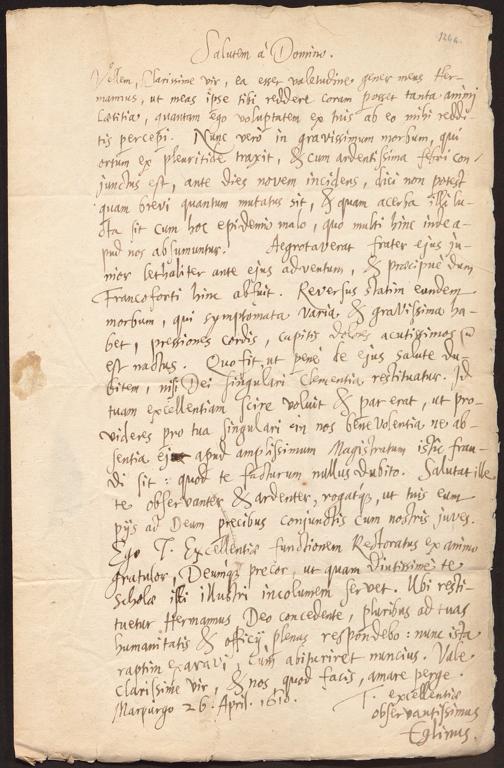 124a.
Salutem à Domino.
Vellem, Clarissime vir, ea esset valetudine gener meus Her-
mannus, ut meas ipse tibi reddere coram posset tanta animi
Lætitia, quantam ego voluptatem ex tuis ab eo mihi reddi-
tis percepi. Nunc verò in gravissimum morbum, qui
ortum ex pleuritide traxit, & cum ardentissima febri con-
junctus est, ante dies novem incidens, dici non potest
quam brevi quantum mutatus sit, & quam acerba illi lu-
cta sit cum hoc epidemio malo, quo multi hinc inde a-
pud nos absumuntur. Aegrotaverat frater ejus ju-
nior lethaliter ante ejus adventum, & præcipuè dum
Francoforti hinc abfuit. Reversus statim eundem
morbum, qui symptomata varia & gravissima ha-
bet, pressiones cordis, capitis dolores acutissimos
est nactus. Quo fit, ut penè de ejus salute du-
bitem, nisi Dei singulari clementia restituatur. Id
tuam excellentiam scire voluit & par erat, ut pro-
videres pro tua singulari in nos benevolentia ne ab-
sentia apud amplissimum Magistratum istic frau-
di sit: quod te facturum nullus dubito. Salutat ille
te observanter & ardenter, rogatque, ut tuis eum
pijs ad Deum precibus conjunctis cum nostris juves.
Ego T. Excellentiæ functionem Rectoratus ex animo
gratulor, Deumque precor, ut quam diutissime te
scholæ isti illustri incolumem servet. Ubi resti-
tuetur Hermannus Deo concedente, pluribus ad tuas
humanitatis & officij plenas respondebo: nunc ista
raptim exaravi, cum abituriret nuncius. Vale
Clarissime vir, & nos quod facis, amare perge.
Marpurgo 26. April. 1610. T. excellentiæ
observantissimus
Eglinus.